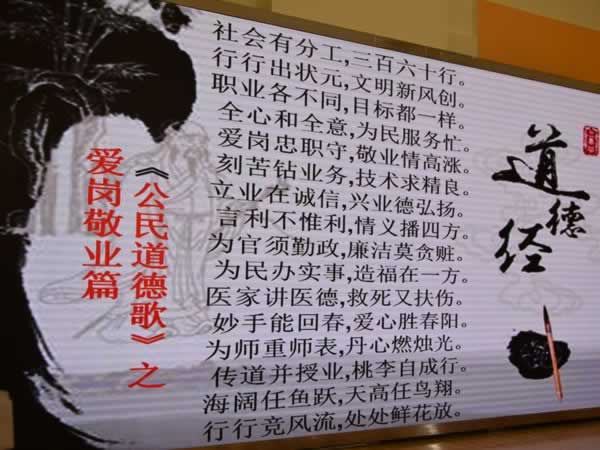 《公民道德歌》之
爱岗敬业篇
社会有分工,三百六十行。
行行出状元,文明新风创。
职业各不同,目标都一样。
全心和全意,为民服务忙。
爱岗忠职守,敬业情高涨。
刻苦钻业务,技术求精良。
立业在诚信,兴业德弘扬。
言利不惟利,情义播四方。
为官须勤政,廉洁莫贪赃。
为民办实事,造福在一方。
医家讲医德,救死又扶伤。
妙手能回春,爱心胜春阳。
为师重师表,丹心燃烛光。
传道并授业,桃李自成行。
海阔任鱼跃,天高任鸟翔。
行行竞风流,处处鲜花放。
道德经